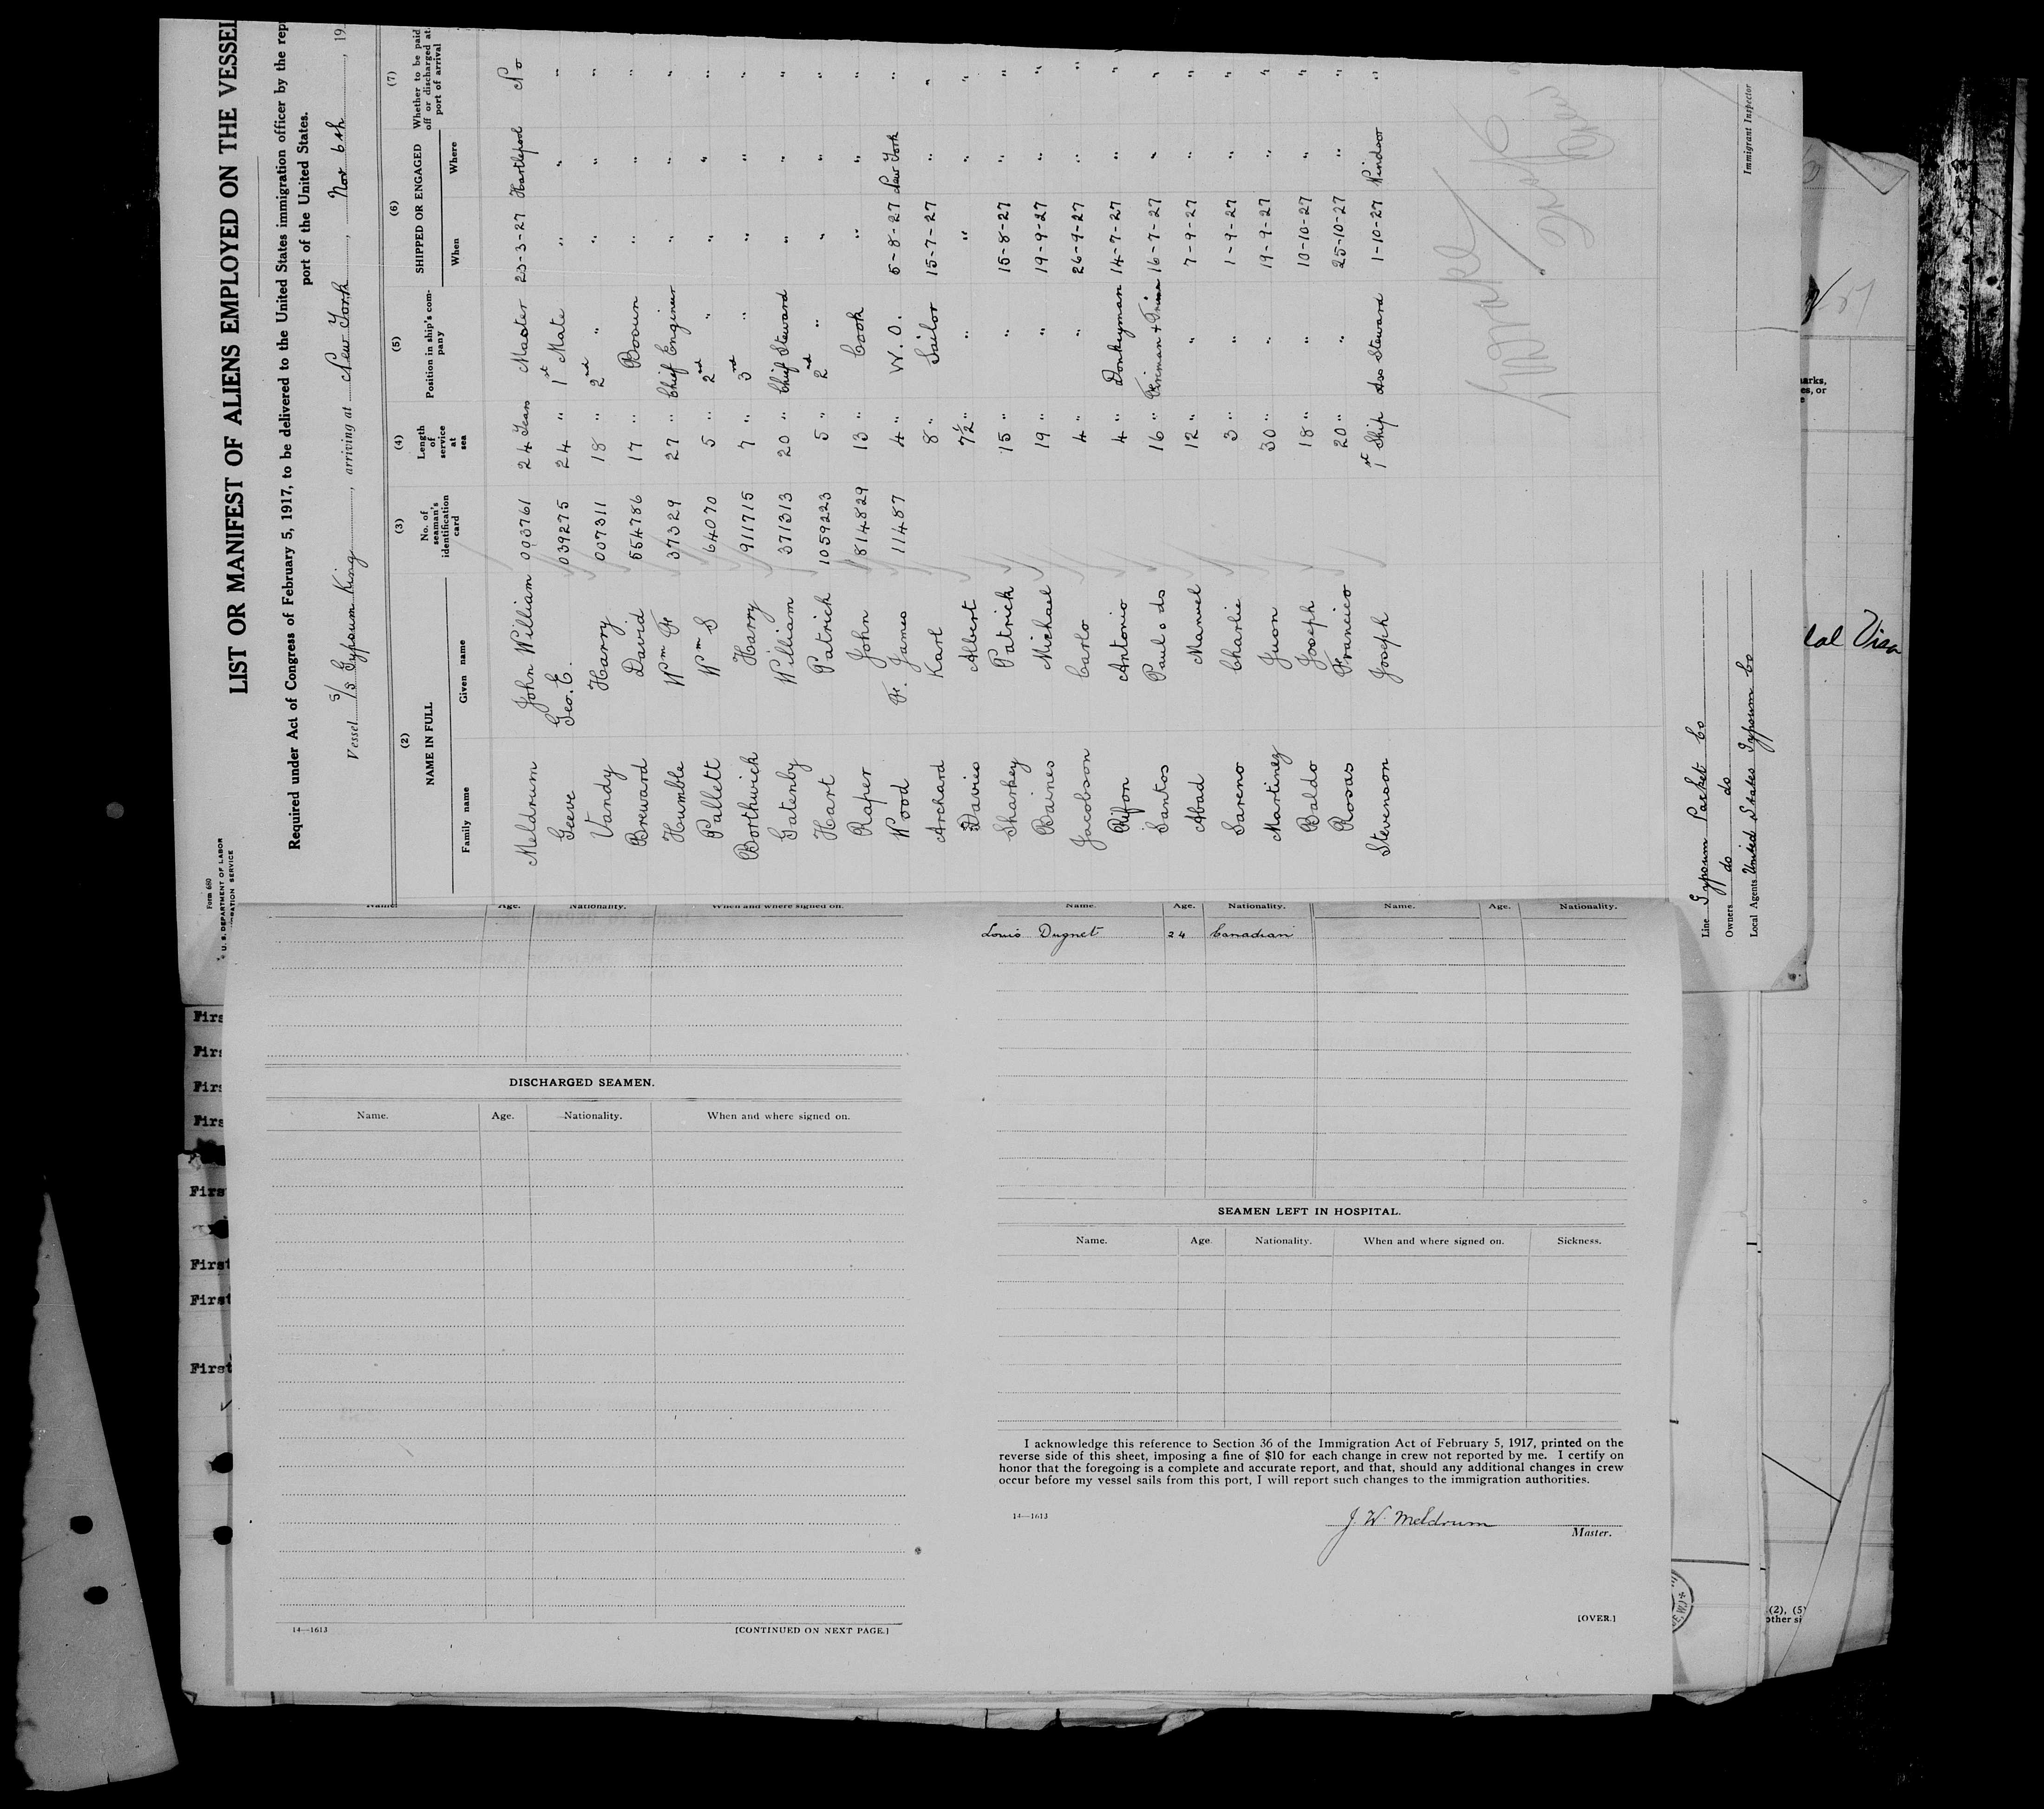 Form 680
U. S. DEPARTMENT OF LABOR
LIST OR MANIFEST OF ALIENS EMPLOYED ON THE VESSEL
Required under Act of Congress of February 5, 1917, to be delivered to the United States immigration officer by the rep
port of the United States.
Vessel S/S Gypsum King, arriving at New York, Nov 6th, 19
(2) (3) (4) (5) (6) (7)
NAME IN FULL No. of seaman's identification card Length of service at sea Position in ship's company SHIPPED OR ENGAGED Whether to be paid off or discharged at port of arrival
Family name Given name When Where
Meldrum John William 003761 24 Years Master 23-3-27 Hartlepool No
Geeve Geo. E. 039275 24 " 1st Mate " " "
Vandy Harry 007311 18 " 2nd " " " "
Breward David 554786 17 " Bosun " " "
Humble Wm F. 37329 27 " Chief Engineer " " "
Pallett Wm S 64070 5 " 2nd " " " "
Borthwick Harry 911715 7 " 3rd " " " "
Gatenby William 371313 20 " Chief Steward " " "
Hart Patrick 1059223 5 " 2nd " " " "
Raper John 814829 13 " Cook " " "
Wood F. James 11487 4 " W.O. 5-8-27 New York "
Archard Karl 8 " Sailor 15-7-27 " "
Davies Albert 7½ " " " " "
Sharkey Patrick 15 " " 15-8-27 " "
Baines Michael 19 " " 19-9-27 " "
Jacobson Carlo 4 " " 26-9-27 " "
Rifon Antonio 4 " Donkeyman 14-7-27 " "
Santos Paul s do 16 " Fireman + Trime 16-7-27 " "
Abad Manuel 12 " " 7-9-27 " "
Sareno Charlie 3 " " 1-9-27 " "
Martinez Juon 30 " " 19-9-27 " "
Baldo Joseph 18 " " 10-10-27 " "
Rosas Francico 20 " " 25-10-27 " "
Stevenson Joseph 1st Ship Ass Steward 1-10-27 Windsor "
Line Gypsum Packet Co
Owners do do
Local Agents United States Gypsum Co
Immigrant Inspector
Name. Age. Nationality. When and where signed on.
DISCHARGED SEAMEN.
Name. Age. Nationality. When and where signed on.
14—1613 [CONTINUED ON NEXT PAGE.]
Name. Age. Nationality. Name. Age. Nationality.
Louis Dugnet 24 Canadian
SEAMEN LEFT IN HOSPITAL.
Name. Age. Nationality. When and where signed on. Sickness.
I acknowledge this reference to Section 36 of the Immigration Act of February 5, 1917, printed on the
reverse side of this sheet, imposing a fine of $10 for each change in crew not reported by me. I certify on
honor that the foregoing is a complete and accurate report, and that, should any additional changes in crew
occur before my vessel sails from this port, I will report such changes to the immigration authorities.
14—1613
J. W. Meldrum
Master.
[OVER.]
Firs
Firs
Firs
Firs
First
First
First
First
Visa
(2), (5)
other si